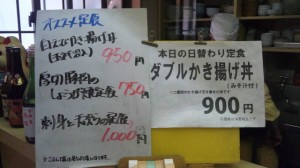 オススメ定食
白えびかき揚げ丼
950円
厚切豚肉の
しょうが焼定食 750円
刺身と天ぷらの定食
1,000円
本日の日替わり定食
ダブルかき揚げ丼
(みそ汁付)
900円